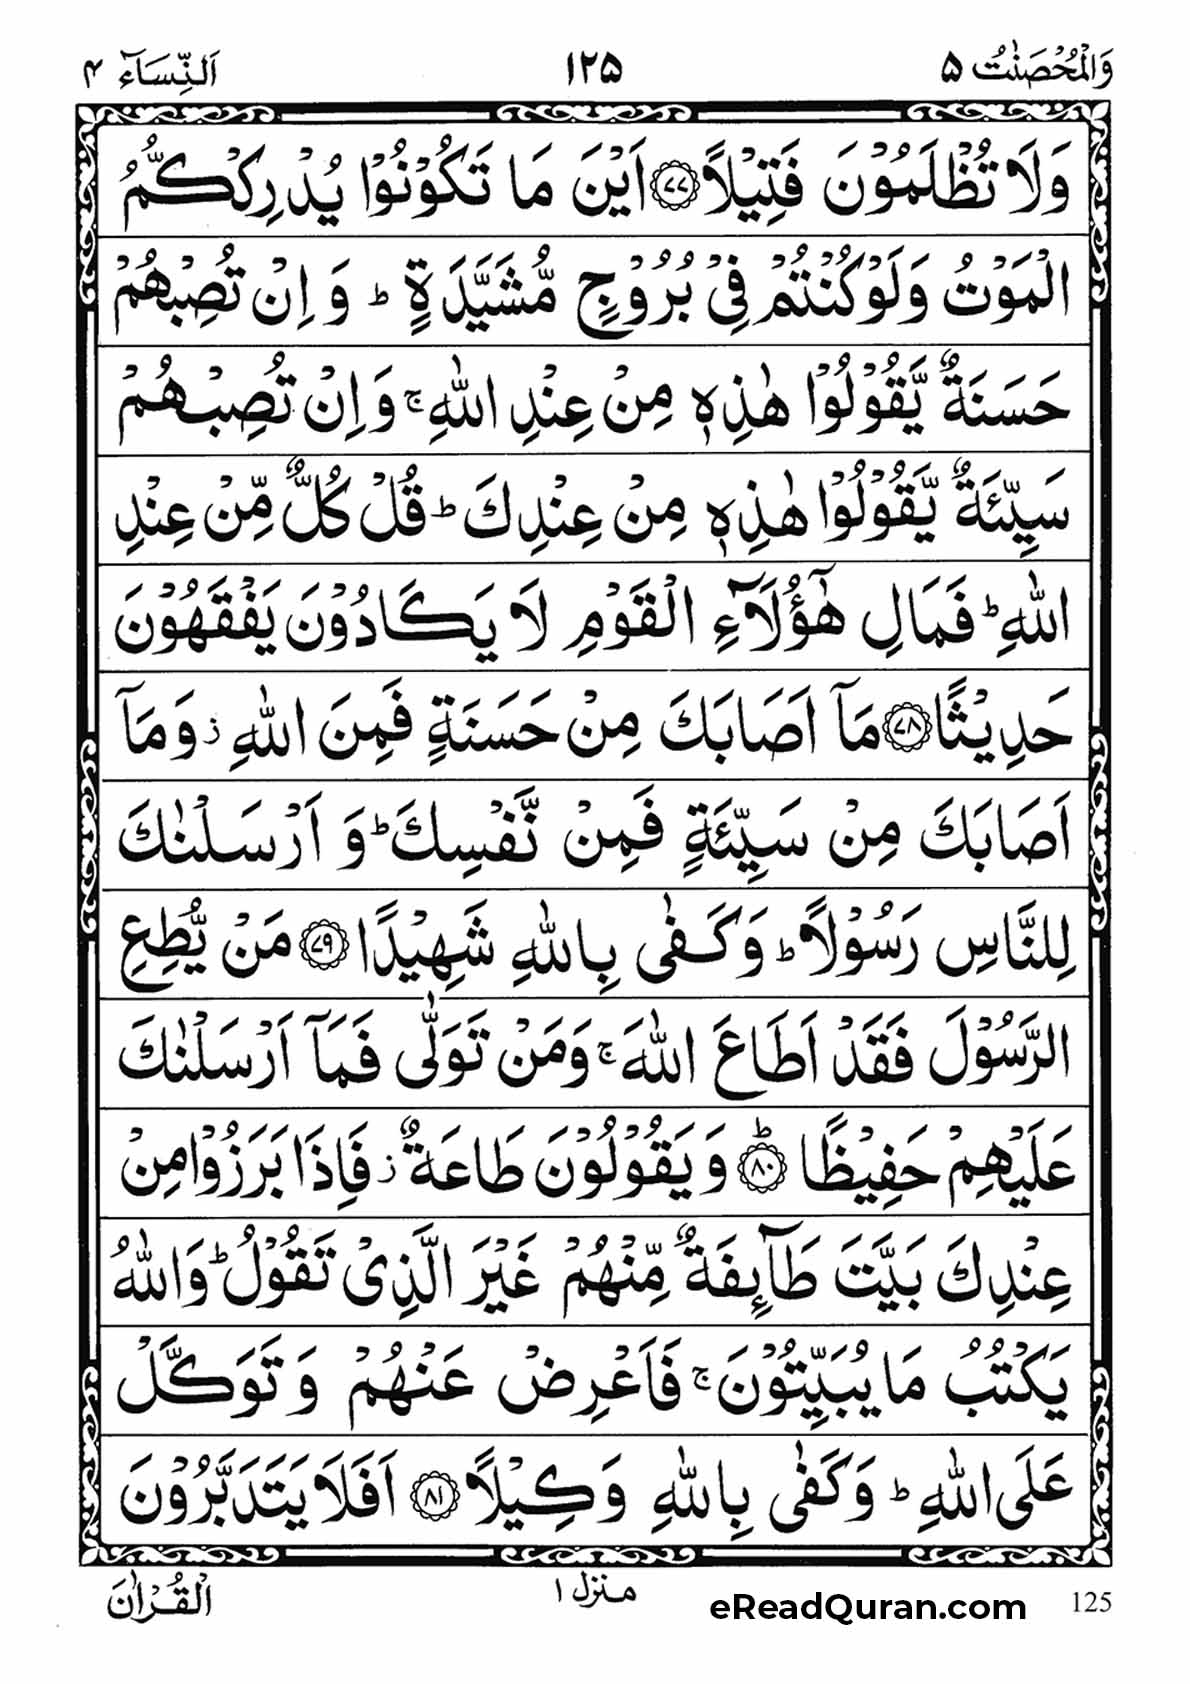 وَالْمُحْصَنٰتُ ۵ ۱۲۵ اَلنِّسَآء ۴
وَلَا تُظْلَمُوْنَ فَتِيْلًا ۷۷ اَيْنَ مَا تَكُوْنُوْا يُدْرِكْكُّمُ
الْمَوْتُ وَلَوْ كُنْتُمْ فِيْ بُرُوْجٍ مُّشَيَّدَةٍ ؕ وَ اِنْ تُصِبْهُمْ
حَسَنَةٌ يَّقُوْلُوْا هٰذِهٖ مِنْ عِنْدِ اللّٰهِ ۚ وَاِنْ تُصِبْهُمْ
سَيِّئَةٌ يَّقُوْلُوْا هٰذِهٖ مِنْ عِنْدِكَ ؕ قُلْ كُلٌّ مِّنْ عِنْدِ
اللّٰهِ ؕ فَمَالِ هٰٓؤُلَآءِ الْقَوْمِ لَا يَكَادُوْنَ يَفْقَهُوْنَ
حَدِيْثًا ۷۸ مَآ اَصَابَكَ مِنْ حَسَنَةٍ فَمِنَ اللّٰهِ ز وَمَآ
اَصَابَكَ مِنْ سَيِّئَةٍ فَمِنْ نَّفْسِكَ ؕ وَ اَرْسَلْنٰكَ
لِلنَّاسِ رَسُوْلًا ؕ وَكَفٰى بِاللّٰهِ شَهِيْدًا ۷۹ مَنْ يُّطِعِ
الرَّسُوْلَ فَقَدْ اَطَاعَ اللّٰهَ ۚ وَمَنْ تَوَلّٰى فَمَآ اَرْسَلْنٰكَ
عَلَيْهِمْ حَفِيْظًا ؕ ۸۰ وَيَقُوْلُوْنَ طَاعَةٌ ز فَاِذَا بَرَزُوْا مِنْ
عِنْدِكَ بَيَّتَ طَآئِفَةٌ مِّنْهُمْ غَيْرَ الَّذِيْ تَقُوْلُ ؕ وَاللّٰهُ
يَكْتُبُ مَا يُبَيِّتُوْنَ ۚ فَاَعْرِضْ عَنْهُمْ وَتَوَكَّلْ
عَلَى اللّٰهِ ؕ وَكَفٰى بِاللّٰهِ وَكِيْلًا ۸۱ اَفَلَا يَتَدَبَّرُوْنَ
125 eReadQuran.com منزل ۱ الْقُرْاٰنَ